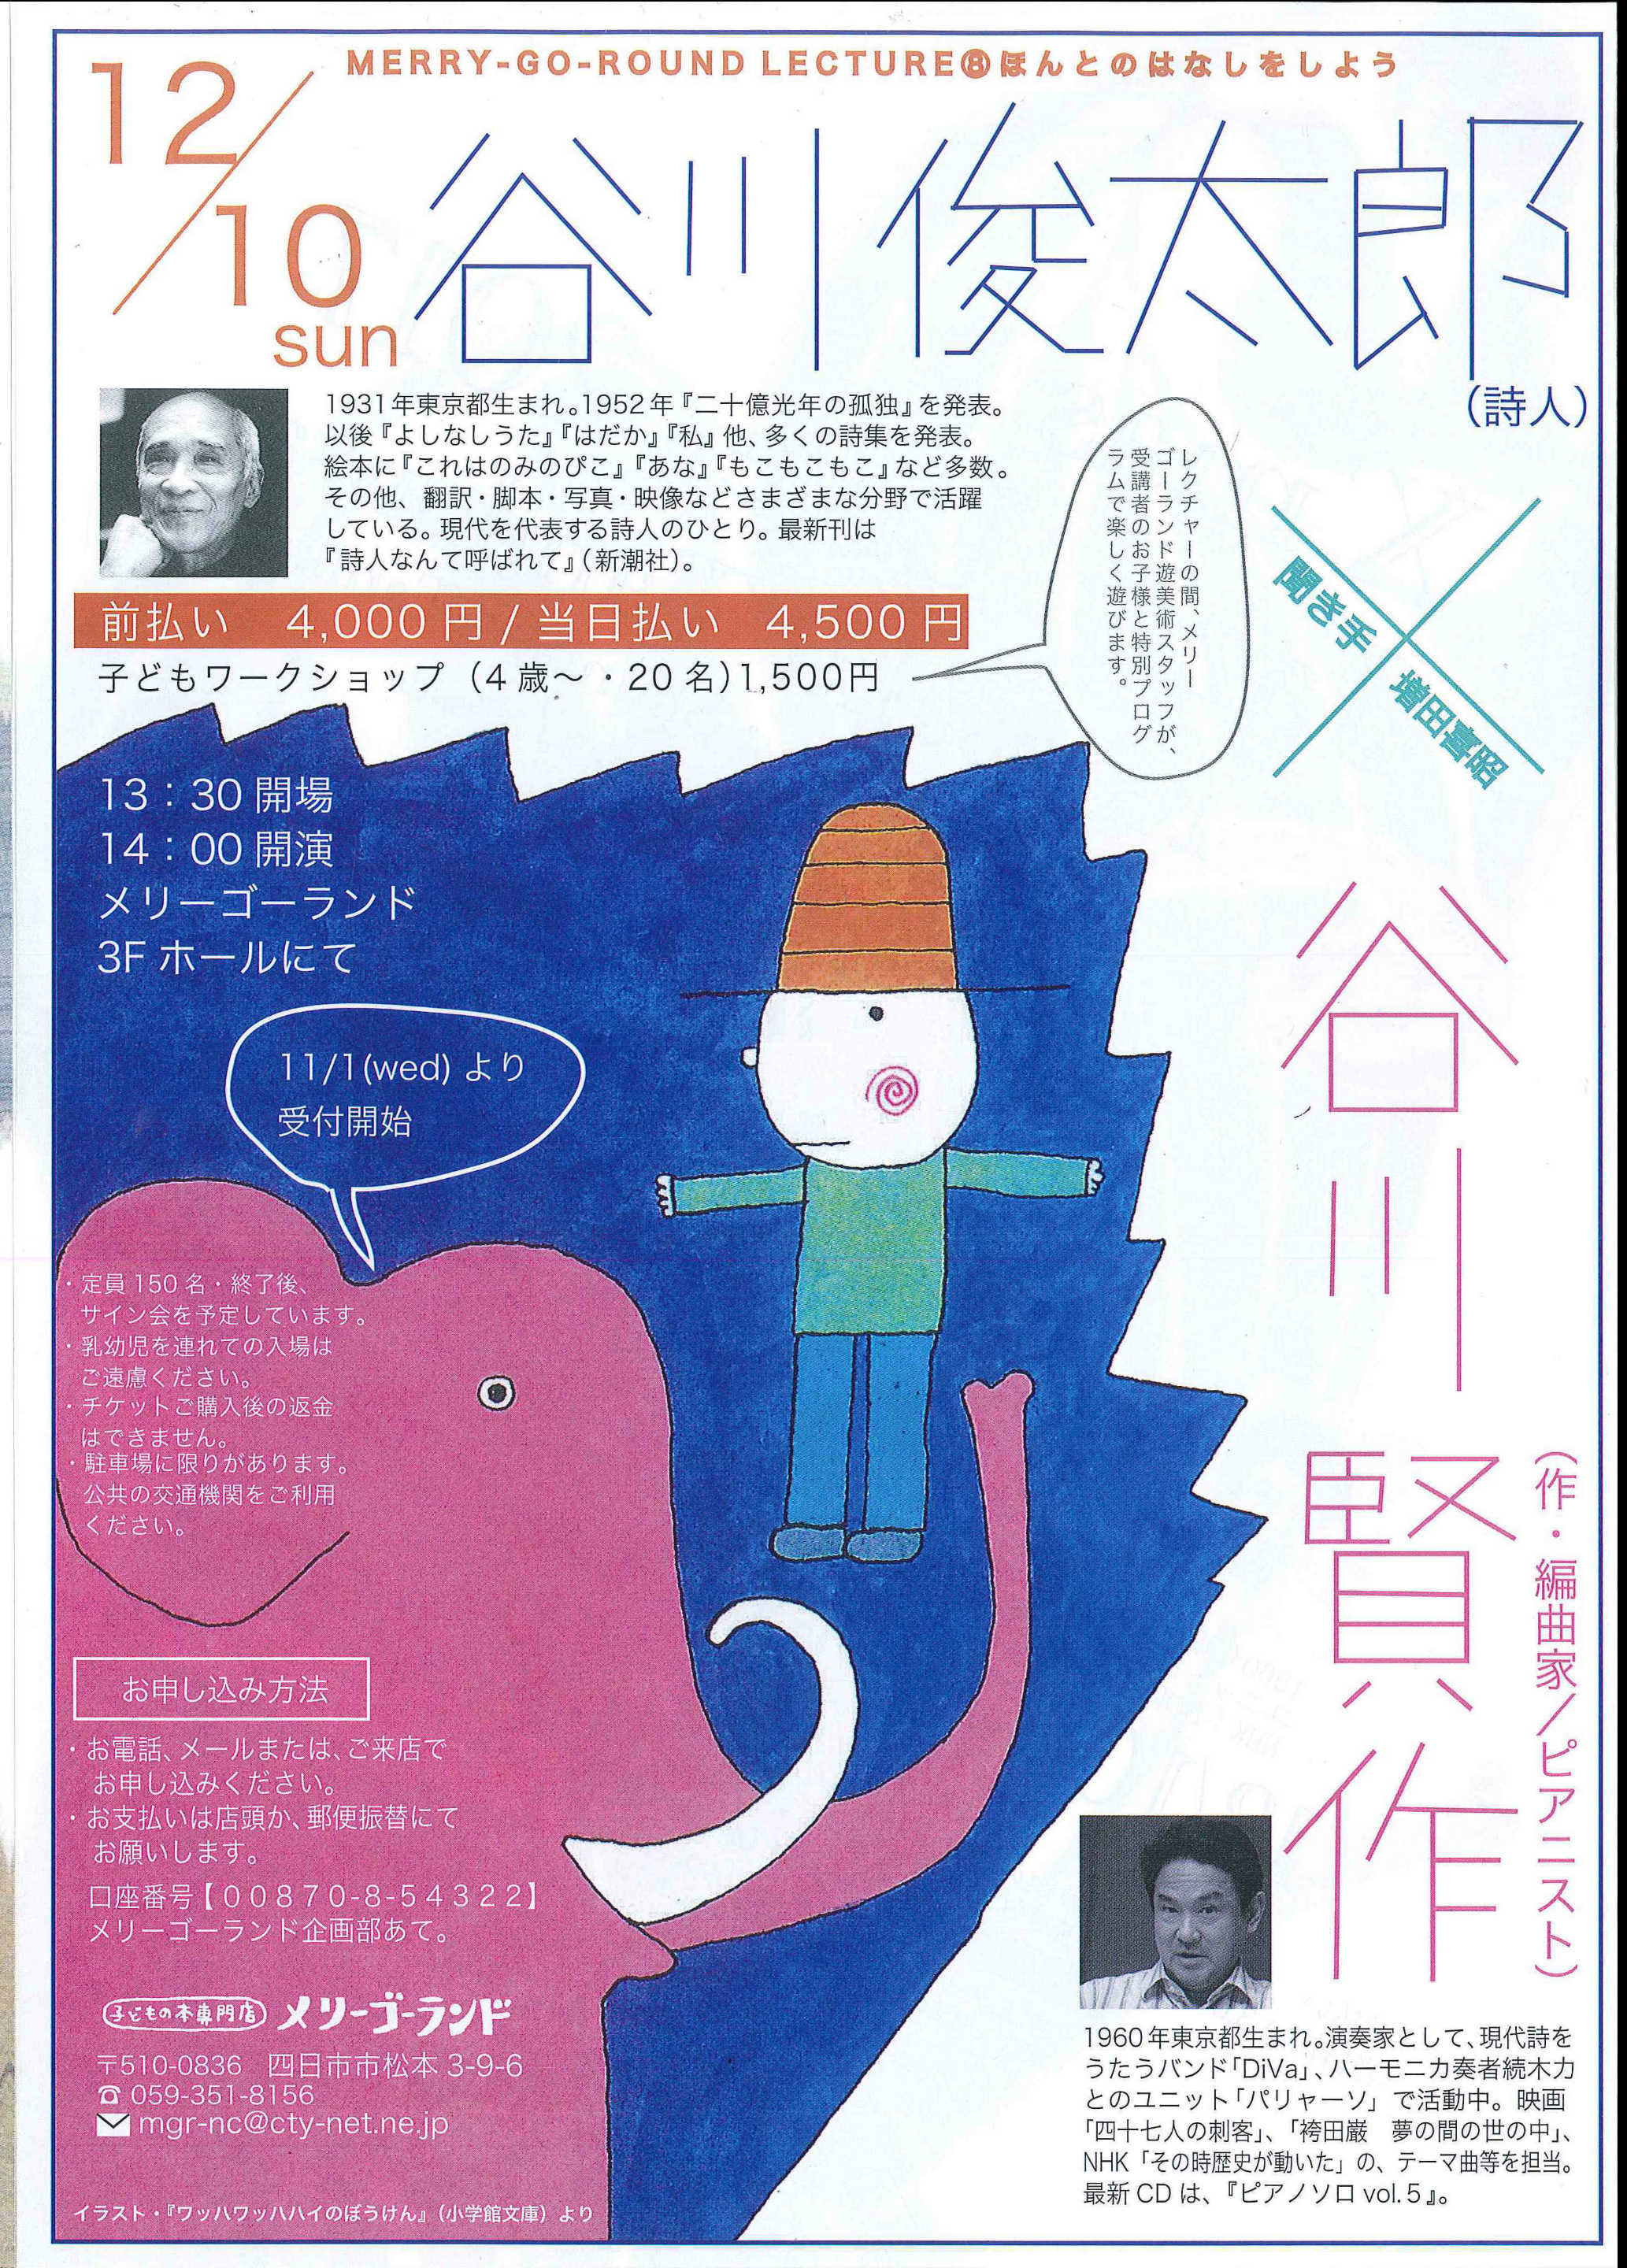 MERRY-GO-ROUND LECTURE⑧ほんとのはなしをしよう
12/10
sun
谷川俊太郎
（詩人）
1931年東京都生まれ。1952年『二十億光年の孤独』を発表。
以後『よしなしうた』『はだか』『私』他、多くの詩集を発表。
絵本に『これはのみのぴこ』『あな』『もこもこもこ』など多数。
その他、翻訳・脚本・写真・映像などさまざまな分野で活躍
している。現代を代表する詩人のひとり。最新刊は
『詩人なんて呼ばれて』（新潮社）。
前払い　4,000 円 / 当日払い　4,500 円
子どもワークショップ（4 歳～・20 名）1,500円
レクチャーの間、メリー
ゴーランド遊美術スタッフが、
受講者のお子様と特別プログ
ラムで楽しく遊びます。
聞き手
増田喜昭
13：30 開場
14：00 開演
メリーゴーランド
3F ホールにて
11/1(wed) より
受付開始
谷川賢作
（作・編曲家／ピアニスト）
・定員 150 名・終了後、
サイン会を予定しています。
・乳幼児を連れての入場は
ご遠慮ください。
・チケットご購入後の返金
はできません。
・駐車場に限りがあります。
公共の交通機関をご利用
ください。
お申し込み方法
・お電話、メールまたは、ご来店で
お申し込みください。
・お支払いは店頭か、郵便振替にて
お願いします。
口座番号【００８７０-８-５４３２２】
メリーゴーランド企画部あて。
子どもの本専門店 メリーゴーランド
〒510-0836　四日市市松本 3-9-6
☎ 059-351-8156
mgr-nc@cty-net.ne.jp
イラスト・『ワッハワッハハイのぼうけん』（小学館文庫）より
1960年東京都生まれ。演奏家として、現代詩を
うたうバンド「DiVa」、ハーモニカ奏者続木力
とのユニット「パリャーソ」で活動中。映画
「四十七人の刺客」、「袴田巖　夢の間の世の中」、
NHK「その時歴史が動いた」の、テーマ曲等を担当。
最新 CD は、『ピアノソロ vol.５』。